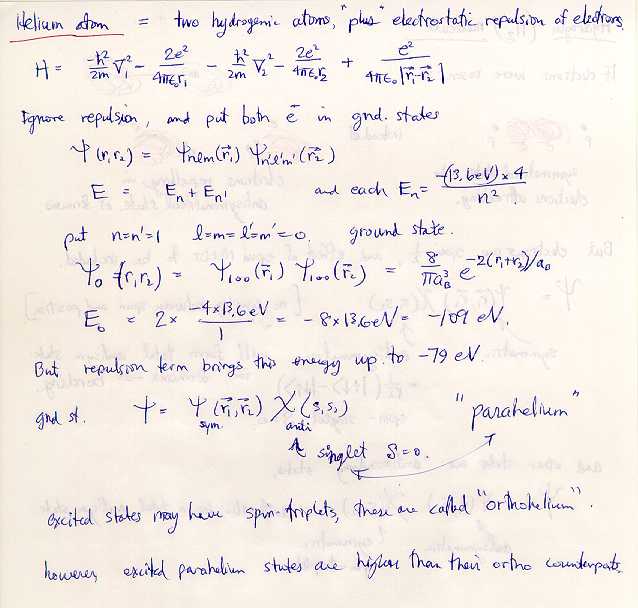 Helium atom = two hydrogenic atoms, "plus" electrostatic repulsion of electrons.
H = -ħ²/2m ∇₁² - 2e²/4πϵ₀r₁ - ħ²/2m ∇₂² - 2e²/4πϵ₀r₂ + e²/4πϵ₀|r⃗₁-r⃗₂|
Ignore repulsion, and put both e⁻ in gnd. states
Ψ(r₁r₂) = Ψnlm(r⃗₁) Ψn'l'm'(r⃗₂)
E = Eₙ + Eₙ' and each Eₙ = -(13.6eV)×4/n²
put n=n'=1 l=m=l'=m'=0. ground state.
Ψ₀(r₁r₂) = Ψ₁₀₀(r⃗₁) Ψ₁₀₀(r⃗₂) = 8/πa_B³ e^-2(r₁+r₂)/a_B
E₀ = 2× -4×13.6eV/1 = -8×13.6eV = -109 eV.
But, repulsion term brings this energy up to -79 eV.
gnd st. Ψ = Ψ(r⃗₁,r⃗₂) χ(s₁s₂) "parahelium"
sym. anti
singlet S=0.
excited states may have spin-triplets, these are called "orthohelium".
however, excited parahelium states are higher than their ortho counterparts.